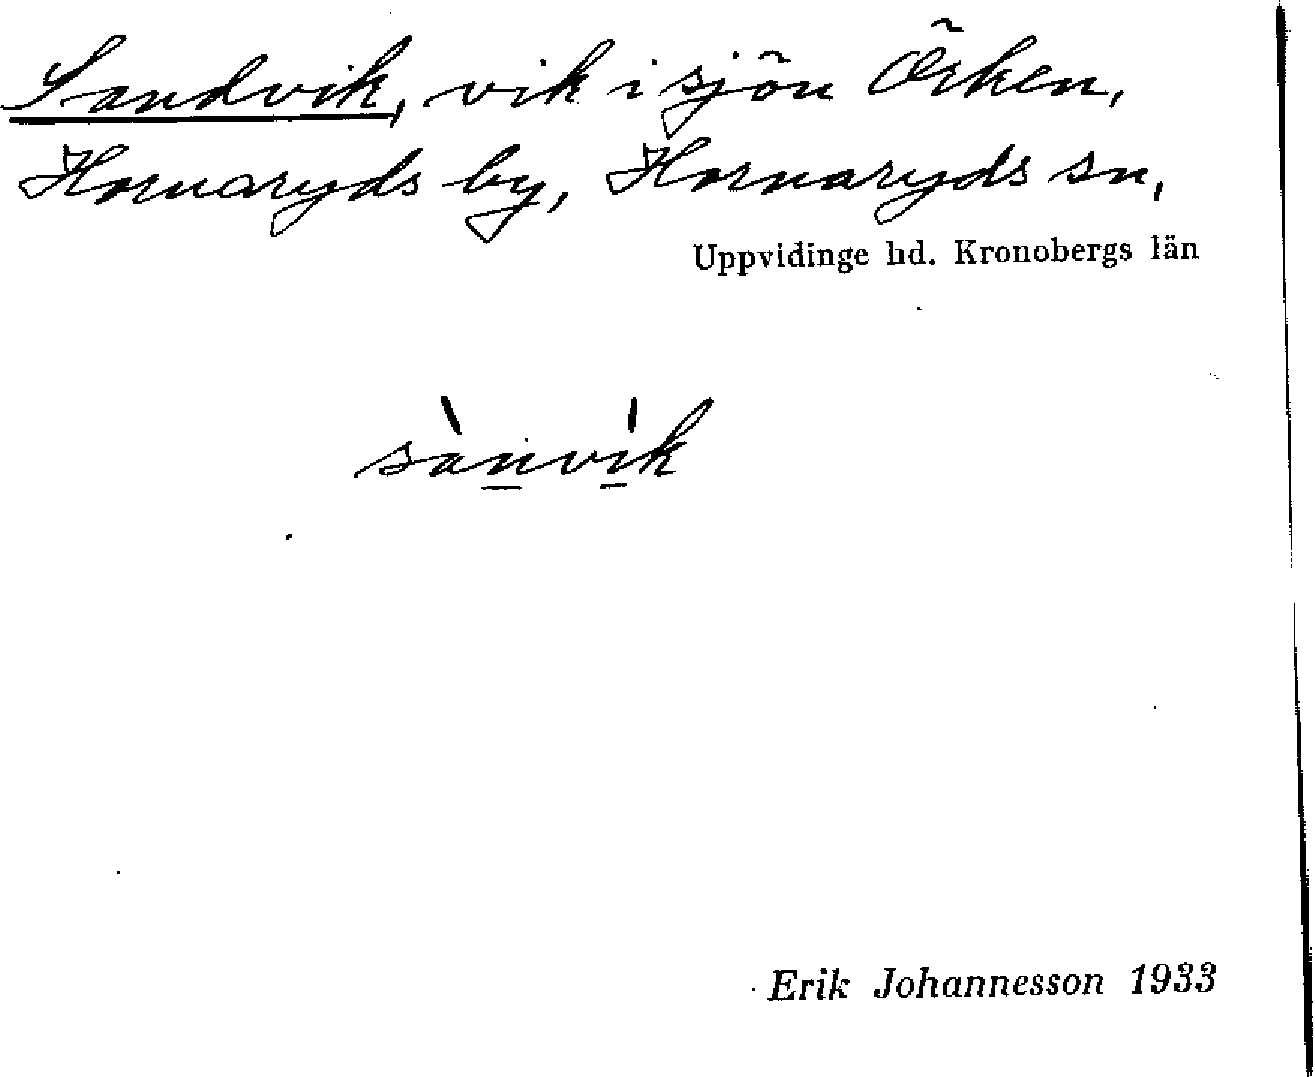 Sandvik, vik i sjön Örken,
Hornaryds by, Hornaryds sn,
Uppvidinge hd. Kronobergs län
sànvík
Erik Johannesson 1933